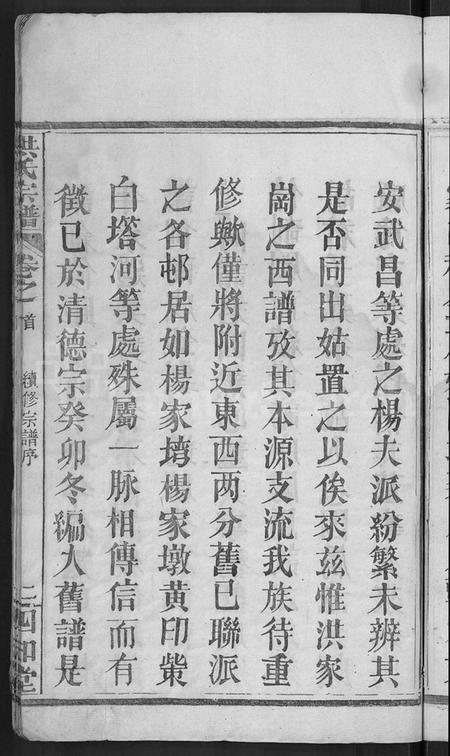 安武昌等處之楊夫派紛繁未辨其
是否同出姑置之以俟來茲惟洪家
崗之西譜攷其本源支流我族待重
修歟僅將附近東西两分舊已聯派
之各邨居如楊家塆楊家墩黃印柴
白塔河等處殊屬一脈相傳信而有
徵已於清德宗癸卯冬編入舊譜是
洪氏宗譜 卷之首 續修宗譜序 二 四知堂